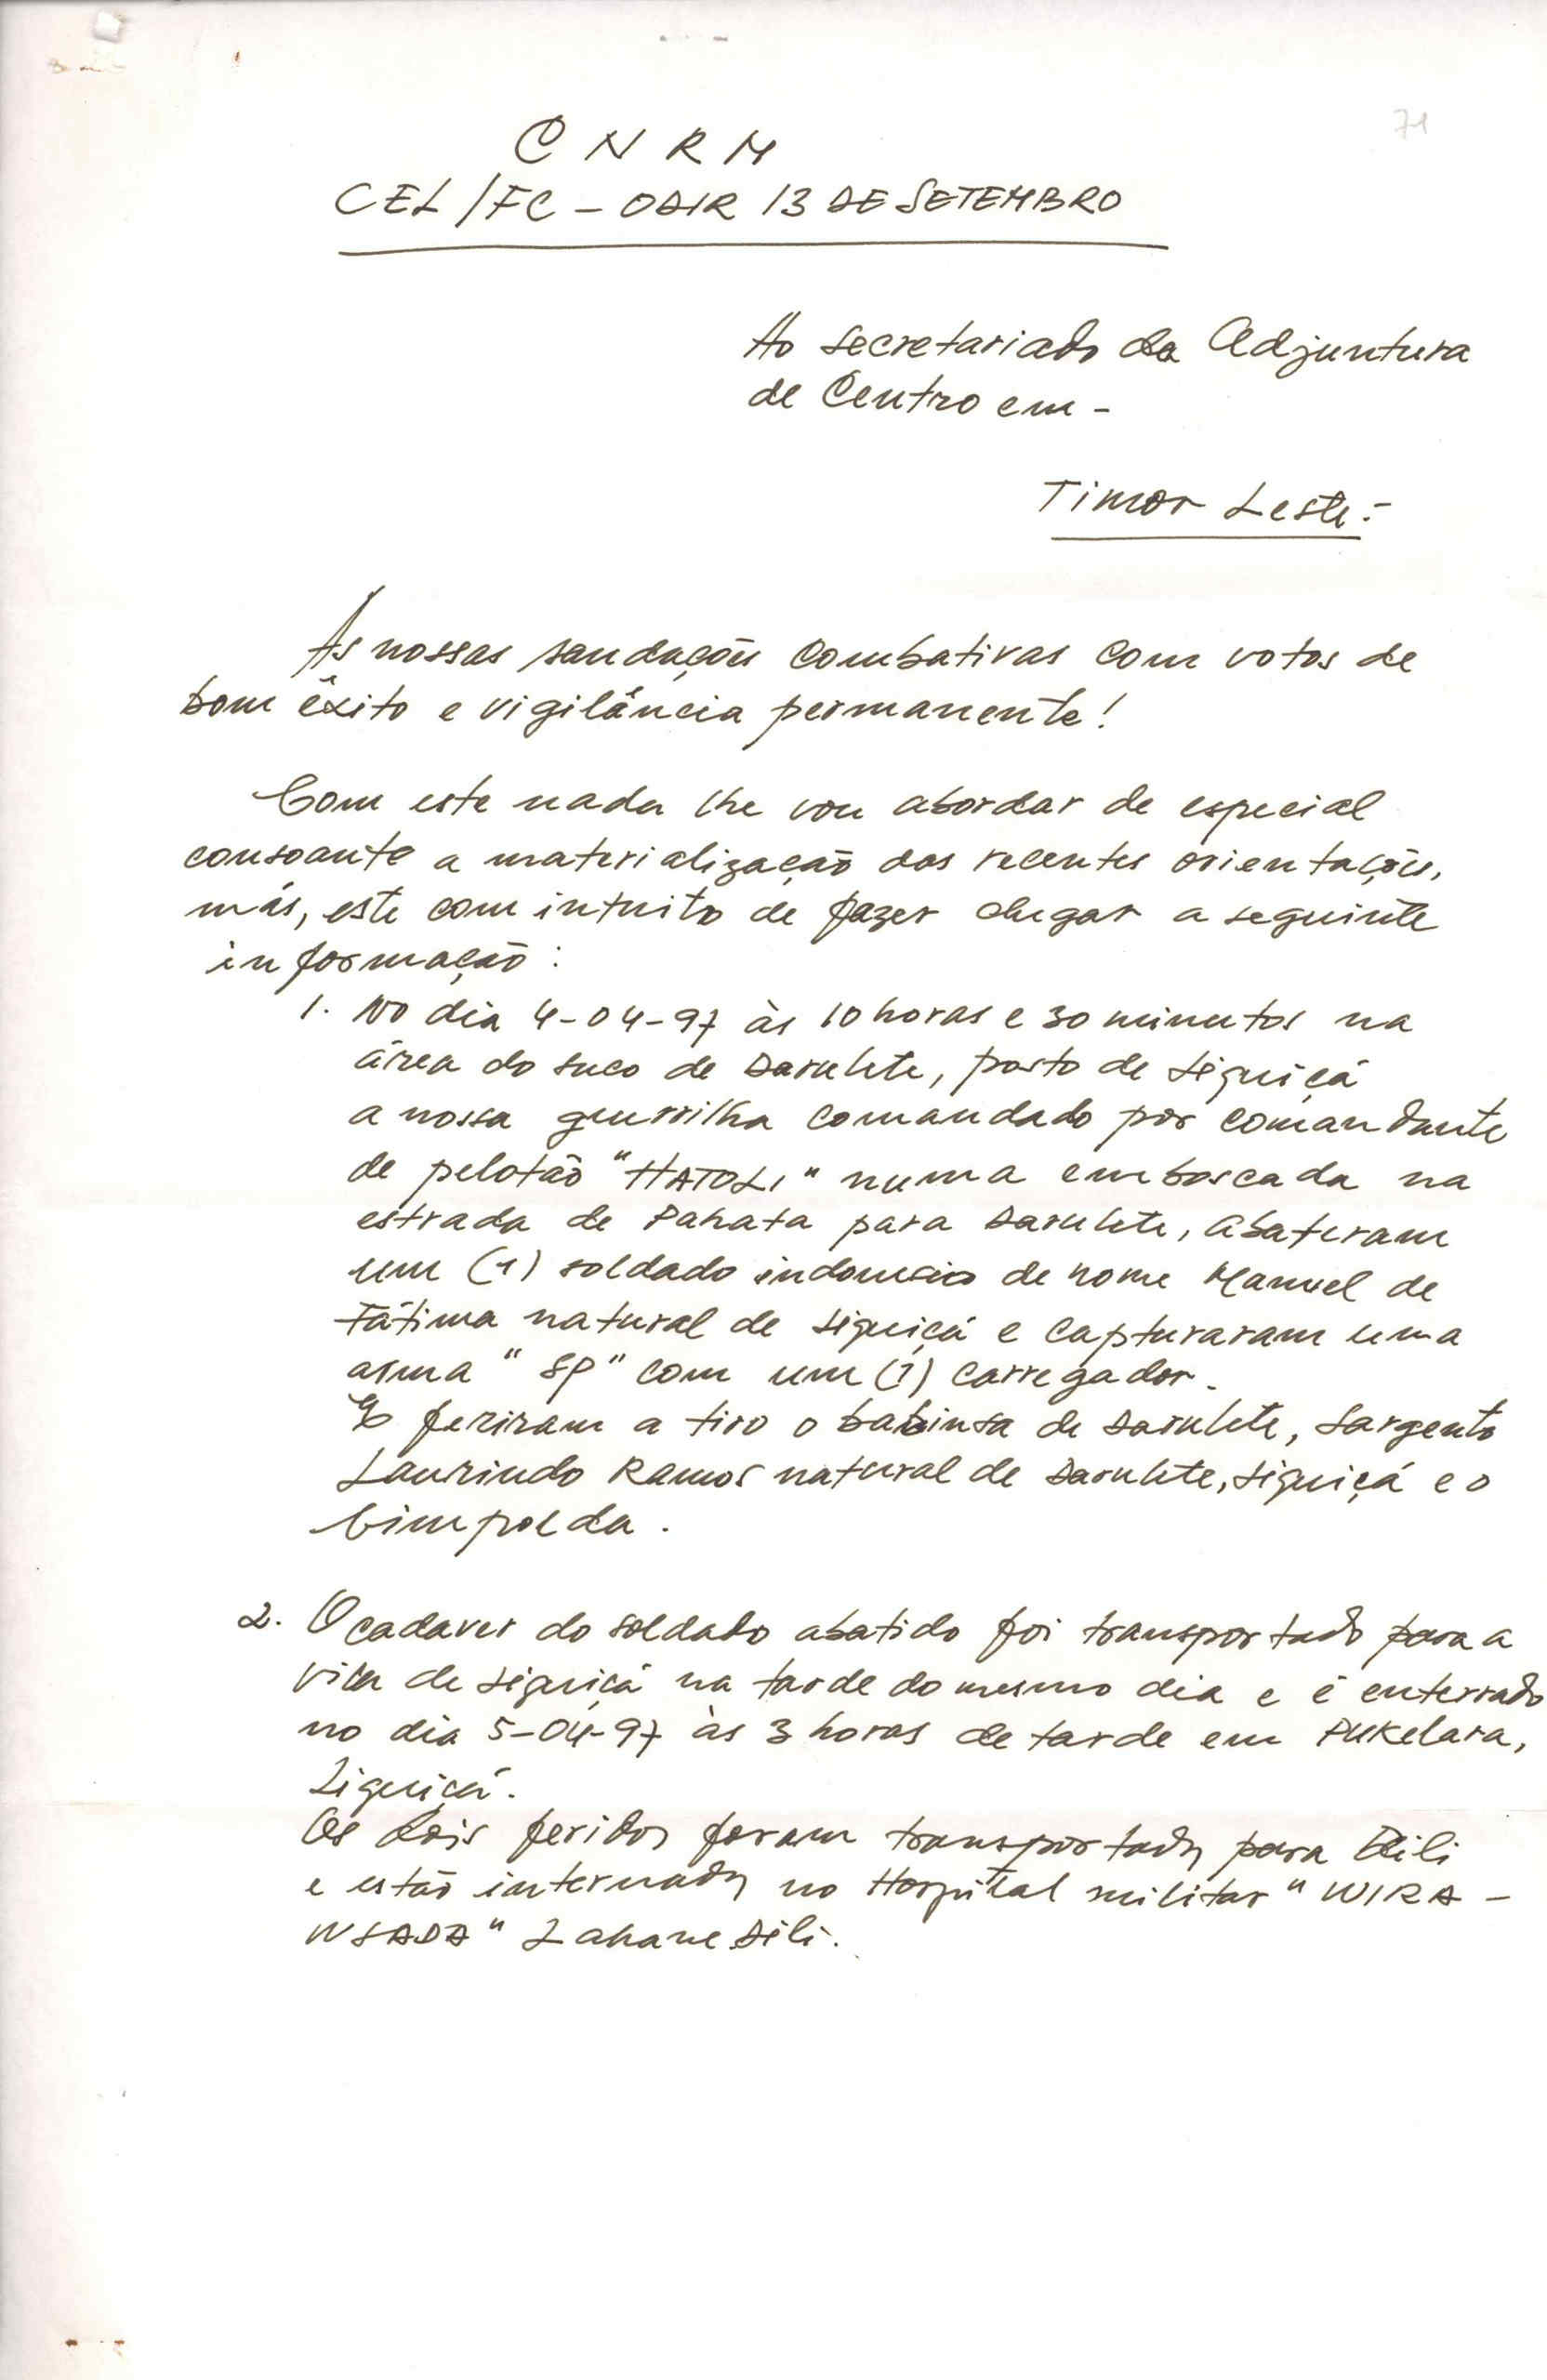 71
C N R M
CEL/FC - ODIR 13 DE SETEMBRO
Ao Secretariado da Adjuntura
de Centro em -
Timor Leste:-
As nossas saudações combativas com votos de
bom êxito e vigilância permanente!
Com este nada lhe vou abordar de especial
consoante a materialização das recentes orientações,
más, este com intuito de fazer chegar a seguinte
informação:
1. No dia 4-04-97 às 10 horas e 30 minutos na
área do suco de Darulete, posto de Liquiçá
a nossa guerrilha comandado por comandante
de pelotão "HATOLI" numa emboscada na
estrada de Pahata para Darulete, abateram
um (1) soldado indonesio de nome Manuel de
Fátima natural de Liquiçá e capturaram uma
arma "SP" com um (1) carregador.
E feriram a tiro o babinsa de Darulete, Sargento
Laurindo Ramos natural de Darulete, Liquiçá e o
bimpolda.
2. O cadaver do soldado abatido foi transportado para a
vila de Liquiçá na tarde do mesmo dia e é enterrado
no dia 5-04-97 às 3 horas de tarde em Pukelara,
Liquiçá.
Os dois feridos foram transportados para Dili
e estão internados no Hospital militar "WIRA -
HUSADA" Lahane Dili.